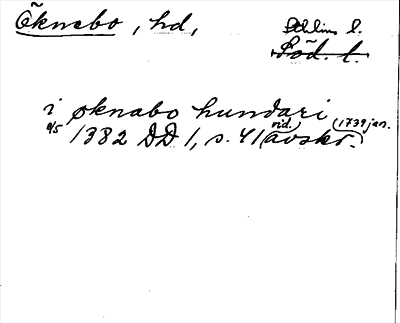 Öknebo, hd,
Sthlms l.
Söd. l.
i øknabo hundari
9/5 1382 DD 1, s. 41 (vid. avskr. 1739 jan.)